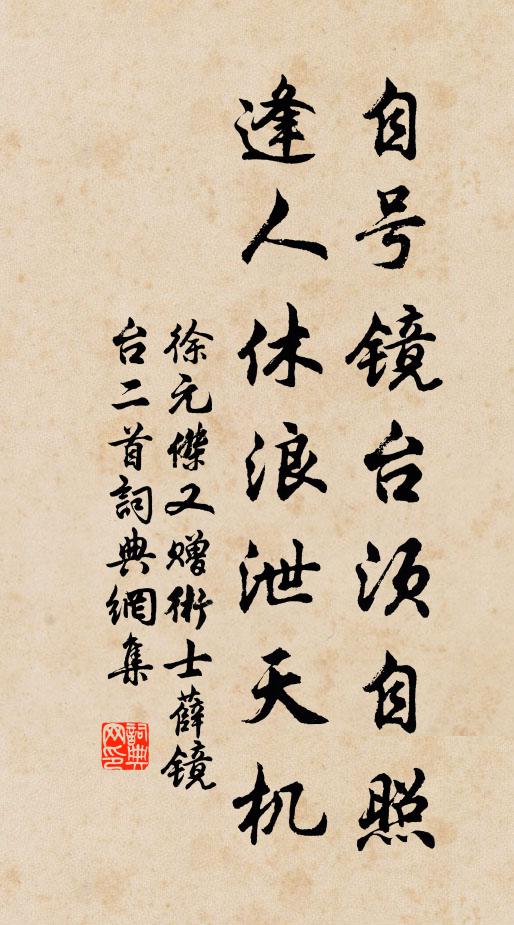 自号镜台须自照
逢人休浪泄天机
徐元傑又赠術士薛镜
台二首詞典網集
詞典网印